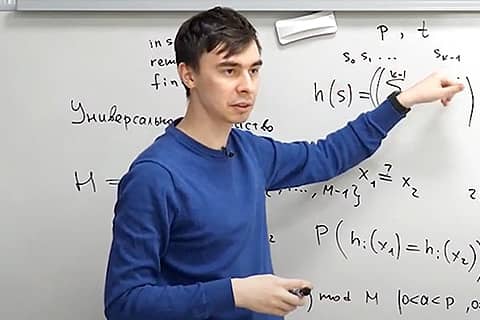 ins
rem
fin
p , t
s₀ s₁ ... sₖ₋₁
h(s) = ((∑ k-1
Универсально ство
H =
, ..., M-1}
x₁ ≟ x₂
P(hᵢ(x₁) = hᵢ(x₂)
) mod M |0<a<p , 0